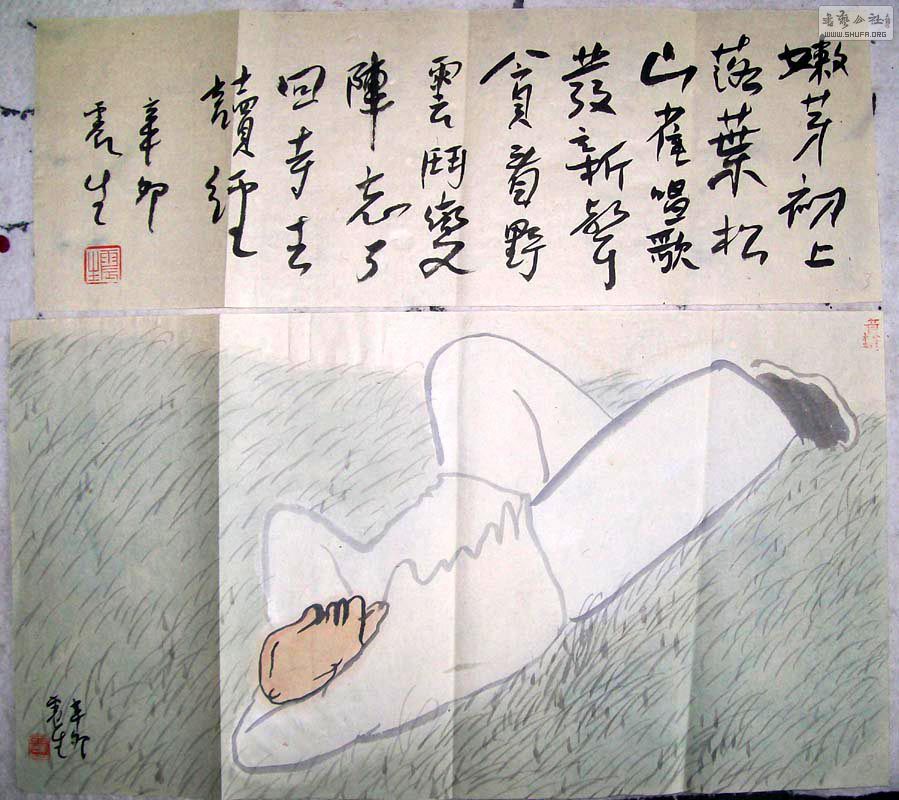 嫩芽初上
落葉松
山雀唱歌
發新聲
貪看野
雲鬥變
陣忘了
回寺去
讀經
辛卯
震生
震生
辛卯
震生
WWW.SHUFA.ORG